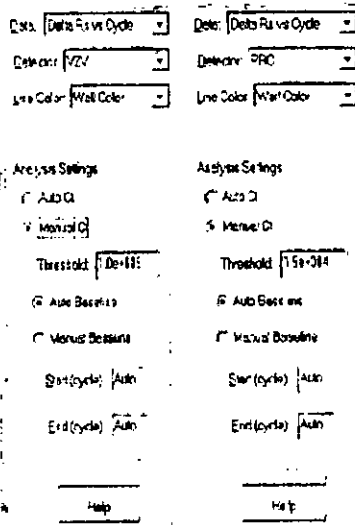 Data: Delta Rn vs Cycle
Detector: VZV
Line Color: Well Color
Analysis Settings
Auto Ct
Manual Ct
Threshold:
Auto Baseline
Manual Baseline
Start (cycle): Auto
End (cycle): Auto
Help
Data: Delta Rn vs Cycle
Detector:
Line Color: Well Color
Analysis Settings
Auto Ct
Manual Ct
Threshold:
Auto Baseline
Manual Baseline
Start (cycle): Auto
End (cycle): Auto
Help